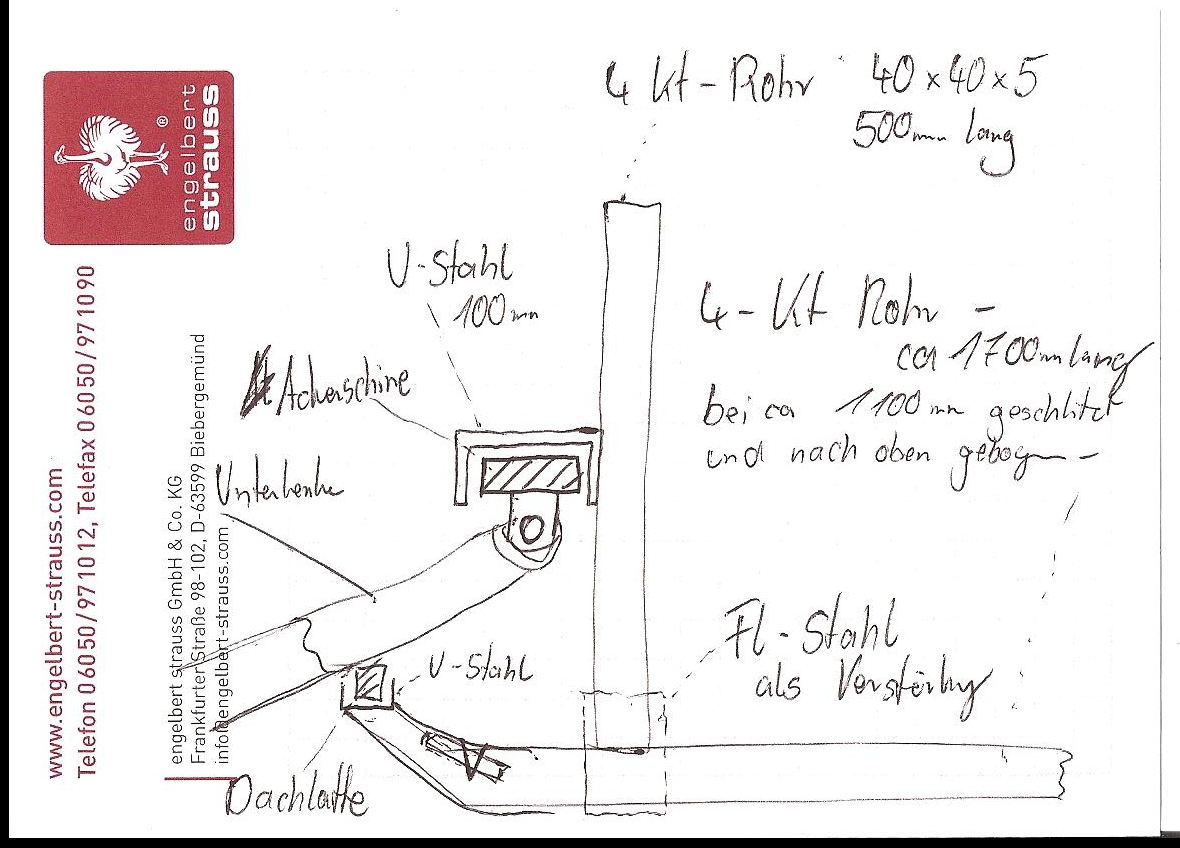 engelbert
strauss
®
www.engelbert-strauss.com
Telefon 0 60 50 / 97 10 12, Telefax 0 60 50 / 97 10 90
engelbert strauss GmbH & Co. KG
Frankfurter Straße 98-102, D-63599 Biebergemünd
info@engelbert-strauss.com
4 kt-Rohr 40x40x5
500mm lang
U-Stahl
100mm
Ackerschine
Unterlenke
4-Kt Rohr -
ca 1700mm lang
bei ca 1100mm geschlitzt
und nach oben gebogen -
Fl-Stahl
als Verstärkung
U-Stahl
Dachlatte